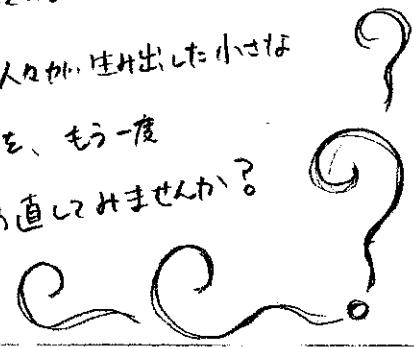 人々が、生み出した小さな
を、もう一度
直してみませんか?